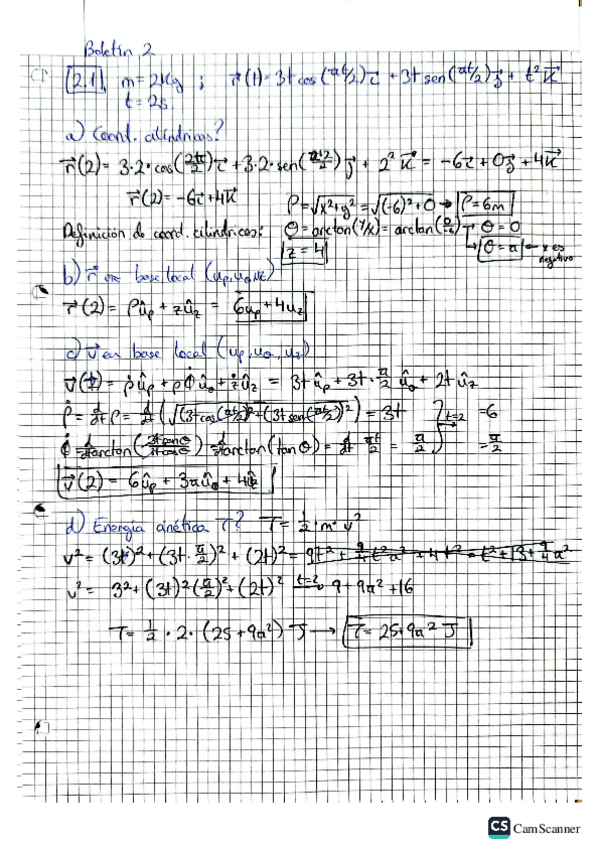 Boletín 2
2.1. m = 2Kg ; r⃗(t) = 3t cos(πt/2) i⃗ + 3t sen(πt/2) j⃗ + t² k⃗
t = 2s
a) Coord. cilíndricas?
r⃗(2) = 3·2·cos(2π/2) i⃗ + 3·2·sen(π·2/2) j⃗ + 2² k⃗ = -6i⃗ + 0j⃗ + 4k⃗
r⃗(2) = -6i⃗ + 4k⃗
ρ = √(x²+y²) = √((-6)²+0) → ρ = 6m
Definición de coord. cilíndricas: θ = arctan(y/x) = arctan(0/-6) → θ = 0
z = 4 → θ = π ← x es negativo
b) r⃗ en base local (uρ, uθ, uz)
r⃗(2) = ρûρ + zûz = 6uρ + 4uz
c) v⃗ en base local (uρ, uθ, uz)
v⃗(t) = ρ̇ ûρ + ρθ̇ ûθ + ż ûz = 3t ûρ + 3t · π/2 ûθ + 2t ûz
ρ̇ = d/dt ρ = d/dt (√((3t cos(πt/2))² + (3t sen(πt/2))²)) = 3t } t=2 → = 6
= d/dt arctan(tanθ) = d/dt πt/2 = π/2 = π/2
v⃗(2) = 6ûρ + 3πûθ + 4k̂
d) Energía cinética T? T = 1/2 · m · v²
v² = (3t)² + (3t · π/2)² + (2t)² =
v² = 3² + (3t)²(π/2)² + (2t)² t=2 → 9 + 9π² + 16
T = 1/2 · 2 · (25 + 9π²) J → T = 25 + 9π² J
CS CamScanner